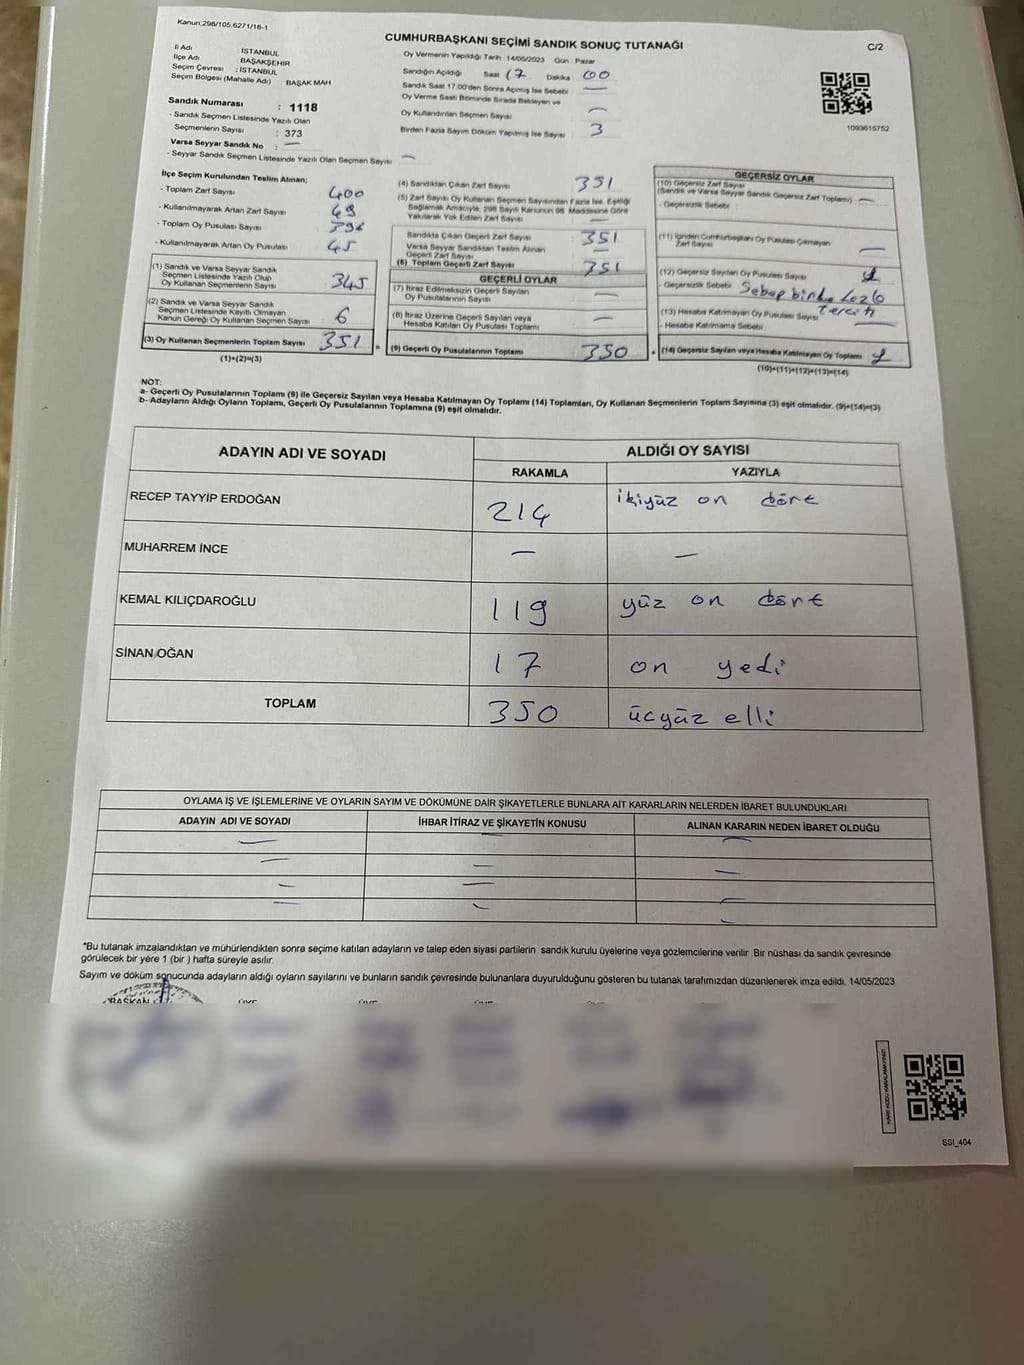 Kanun:298/105,6271/18-1
CUMHURBAŞKANI SEÇİMİ SANDIK SONUÇ TUTANAĞI
C/2
İl Adı : İSTANBUL
İlçe Adı : BAŞAKŞEHİR
Seçim Çevresi : İSTANBUL
Seçim Bölgesi (Mahalle Adı) : BAŞAK MAH
Sandık Numarası : 1118
- Sandık Seçmen Listesinde Yazılı Olan
Seçmenlerin Sayısı : 373
Varsa Seyyar Sandık No : —
- Seyyar Sandık Seçmen Listesinde Yazılı Olan Seçmen Sayısı —
Oy Vermenin Yapıldığı Tarih :14/05/2023 Gün : Pazar
Sandığın Açıldığı Saat 17 Dakika : 00
Sandık Saat 17:00'den Sonra Açılmış İse Sebebi : —
Oy Verme Saati Bitiminde Sırada Bekleyen ve
Oy Kullandırılan Seçmen Sayısı : —
Birden Fazla Sayım Döküm Yapılmış İse Sayısı : 3
1093615752
İlçe Seçim Kurulundan Teslim Alınan;
- Toplam Zarf Sayısı : 400
- Kullanılmayarak Artan Zarf Sayısı : 49
- Toplam Oy Pusulası Sayısı : 396
- Kullanılmayarak Artan Oy Pusulası : 45
(1) Sandık ve Varsa Seyyar Sandık
Seçmen Listesinde Yazılı Olup
Oy Kullanan Seçmenlerin Sayısı : 345
(2) Sandık ve Varsa Seyyar Sandık
Seçmen Listesinde Kayıtlı Olmayan
Kanun Gereği Oy Kullanan Seçmen Sayısı : 6
(3) Oy Kullanan Seçmenlerin Toplam Sayısı : 351
(1)+(2)=(3)
(4) Sandıktan Çıkan Zarf Sayısı : 351
(5) Zarf Sayısı Oy Kullanan Seçmen Sayısından Fazla İse, Eşitliği
Sağlamak Amacıyla; 298 Sayılı Kanunun 98. Maddesine Göre
Yakılarak Yok Edilen Zarf Sayısı : —
Sandıkta Çıkan Geçerli Zarf Sayısı : 351
Varsa Seyyar Sandıktan Teslim Alınan
Geçerli Zarf Sayısı : —
(6) Toplam Geçerli Zarf Sayısı : 351
GEÇERLİ OYLAR
(7) İtiraz Edilmeksizin Geçerli Sayılan
Oy Pusulalarının Sayısı : —
(8) İtiraz Üzerine Geçerli Sayılan veya
Hesaba Katılan Oy Pusulası Toplamı : —
= (9) Geçerli Oy Pusulalarının Toplamı : 350
GEÇERSİZ OYLAR
(10) Geçersiz Zarf Sayısı
(Sandık ve Varsa Seyyar Sandık Geçersiz Zarf Toplamı) : —
- Geçersizlik Sebebi :
(11) İçinden Cumhurbaşkanı Oy Pusulası Çıkmayan
Zarf Sayısı : —
(12) Geçersiz Sayılan Oy Pusulası Sayısı : 1
- Geçersizlik Sebebi : Sebep birden fazla
tercih
(13) Hesaba Katılmayan Oy Pusulası Sayısı : —
- Hesaba Katılmama Sebebi :
+ (14) Geçersiz Sayılan veya Hesaba Katılmayan Oy Toplamı : 1
(10)+(11)+(12)+(13)=(14)
NOT:
a- Geçerli Oy Pusulalarının Toplamı (9) ile Geçersiz Sayılan veya Hesaba Katılmayan Oy Toplamı (14) Toplamları, Oy Kullanan Seçmenlerin Toplam Sayısına (3) eşit olmalıdır. (9)+(14)=(3)
b- Adayların Aldığı Oyların Toplamı, Geçerli Oy Pusulalarının Toplamına (9) eşit olmalıdır.
ADAYIN ADI VE SOYADI
ALDIĞI OY SAYISI
RAKAMLA YAZIYLA
RECEP TAYYİP ERDOĞAN 214 ikiyüz on dört
MUHARREM İNCE — —
KEMAL KILIÇDAROĞLU 119 yüz on dört
SİNAN OĞAN 17 on yedi
TOPLAM 350 üçyüz elli
OYLAMA İŞ VE İŞLEMLERİNE VE OYLARIN SAYIM VE DÖKÜMÜNE DAİR ŞİKAYETLERLE BUNLARA AİT KARARLARIN NELERDEN İBARET BULUNDUKLARI
ADAYIN ADI VE SOYADI İHBAR İTİRAZ VE ŞİKAYETİN KONUSU ALINAN KARARIN NEDEN İBARET OLDUĞU
— — —
— — —
— — —
— — —
*Bu tutanak imzalandıktan ve mühürlendikten sonra seçime katılan adayların ve talep eden siyasi partilerin sandık kurulu üyelerine veya gözlemcilerine verilir Bir nüshası da sandık çevresinde
görülecek bir yere 1 (bir ) hafta süreyle asılır.
Sayım ve döküm sonucunda adayların aldığı oyların sayılarını ve bunların sandık çevresinde bulunanlara duyurulduğunu gösteren bu tutanak tarafımızdan düzenlenerek imza edildi. 14/05/2023
BAŞKAN ÜYE ÜYE ÜYE
KARE KODU KARALAMAYINIZ!
SSI_404